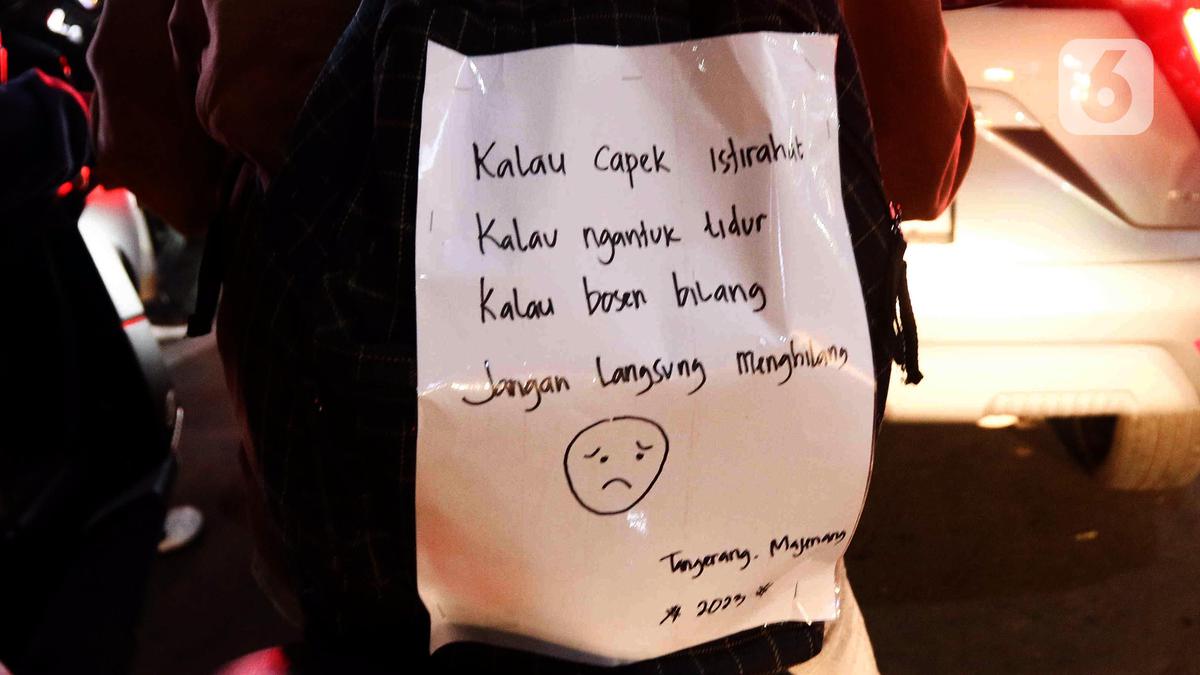 6
Kalau capek istirahat
Kalau ngantuk tidur
Kalau bosen bilang
Jangan langsung menghilang
Tangerang. Majenang
* 2023 *